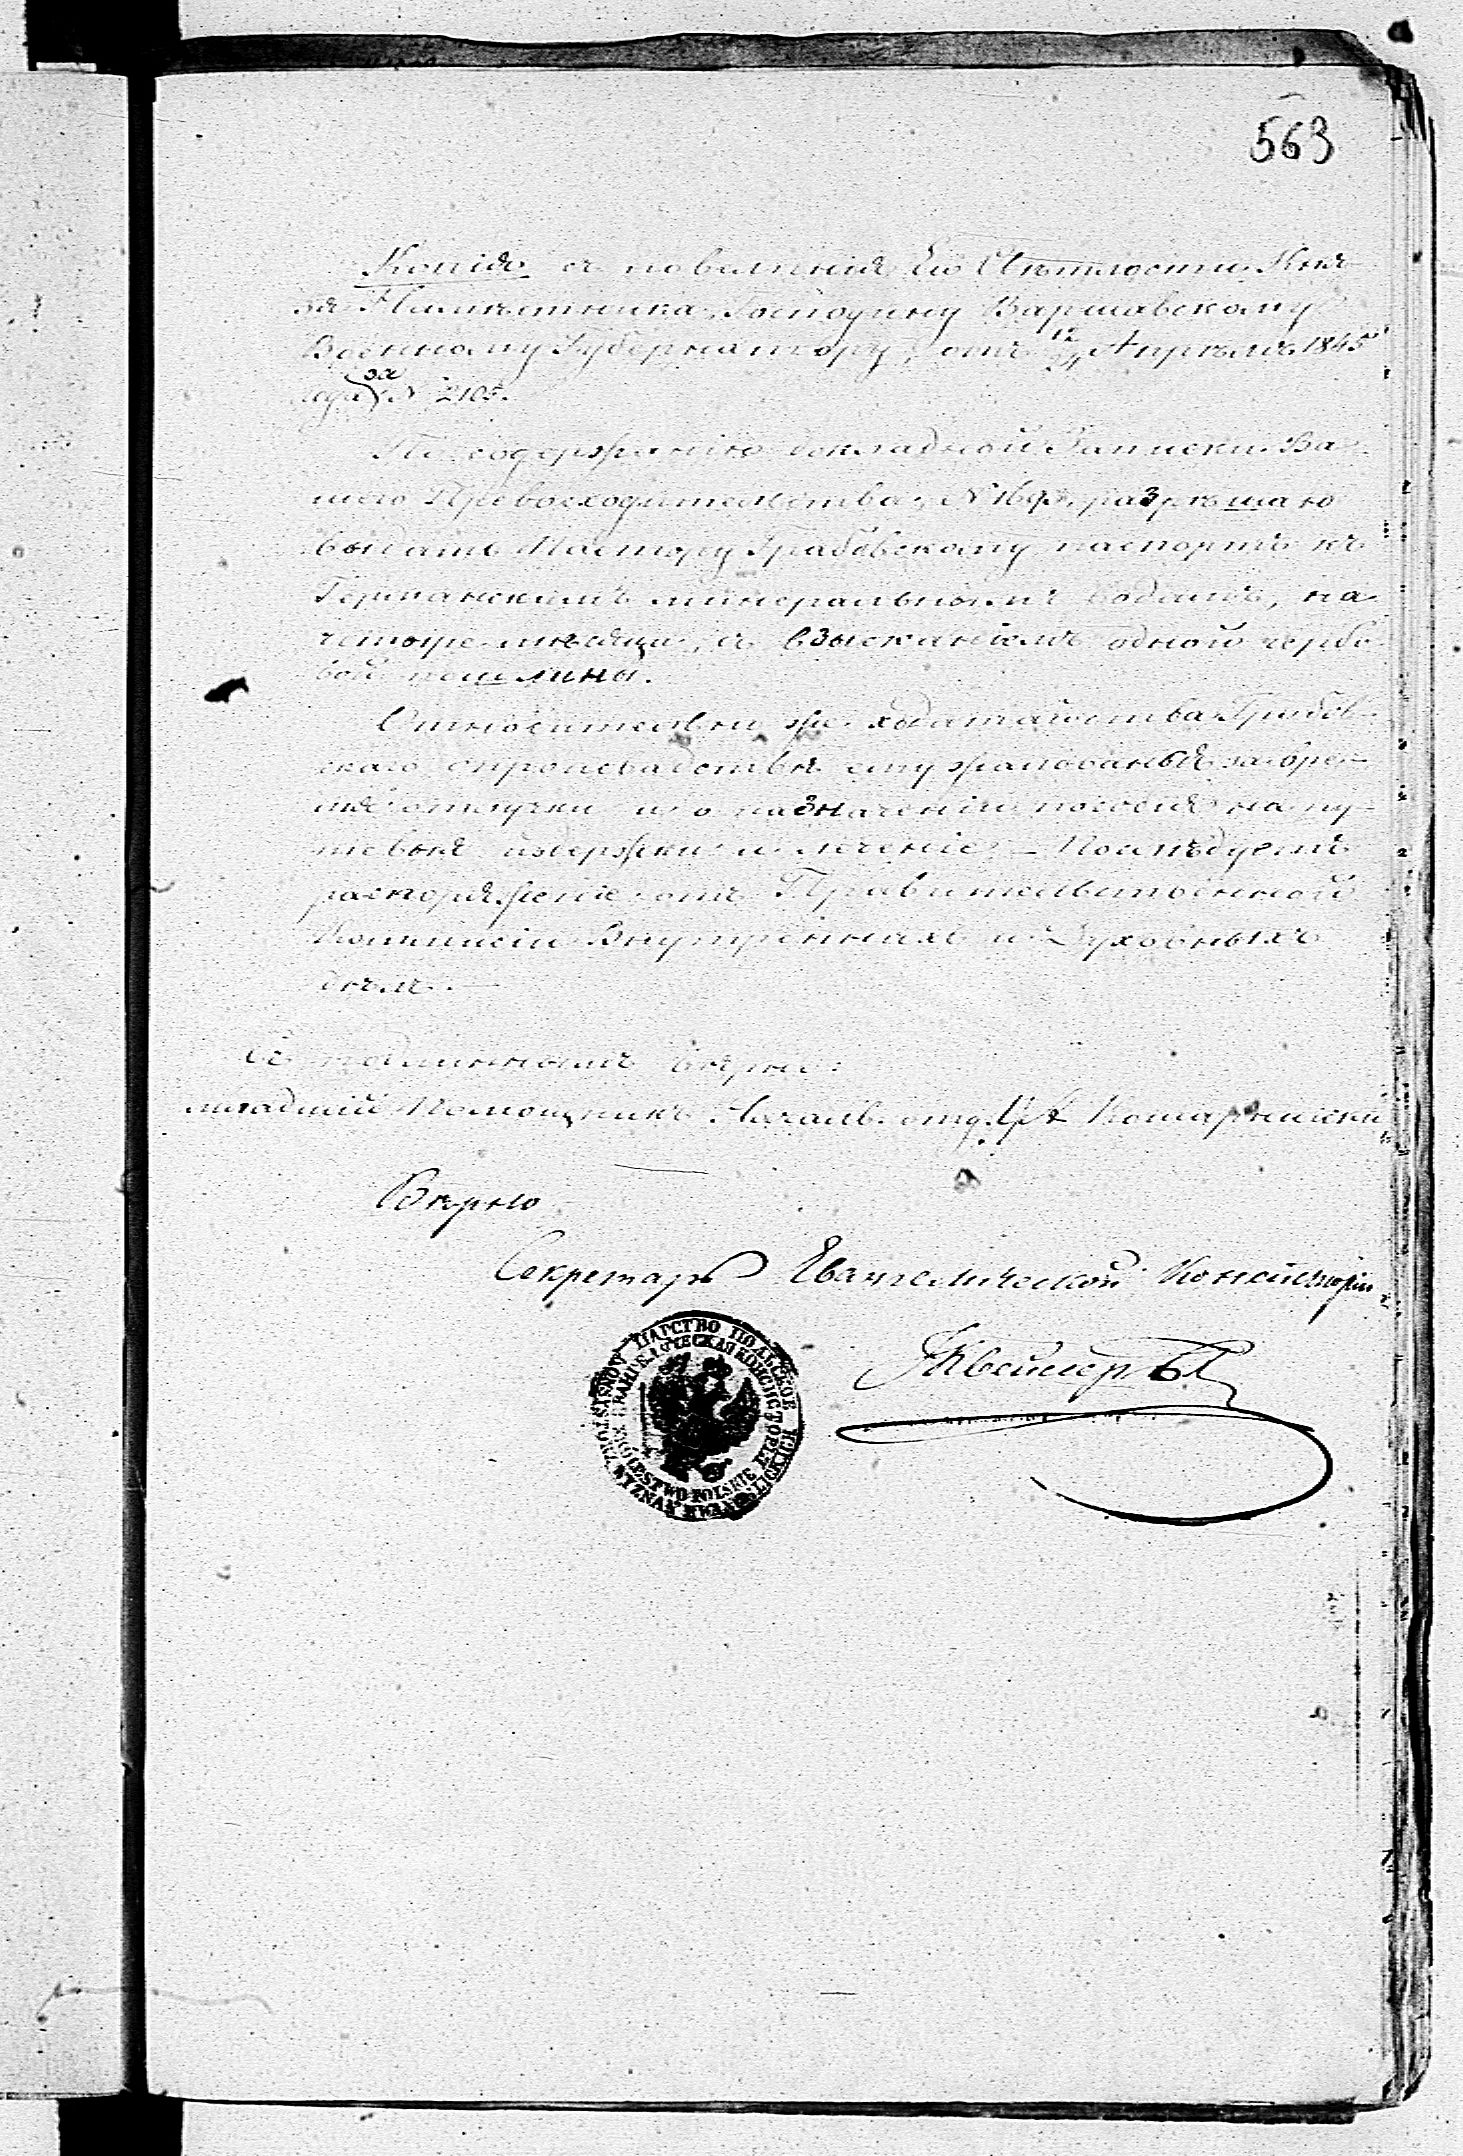 563
Копія съ повелѣнія Его Свѣтлости Кня-
зя Намѣстника, Господину Варшавскому
Военному Губернатору, отъ 12/24 Апрѣля 1845
года за N 2105.
По содержанію докладной Записки Ва-
шего Превосходительства, N разрѣшаю
выдать Пастору Грабовскому паспортъ къ
Германскимъ минеральнымъ водамъ, на
четыре мѣсяца, съ взысканіемъ одной гербо-
вой пошлины.
Относительно же ходатайства Грабов-
скаго о производствѣ ему жалованья за вре-
мя отлучки и о назначеніи пособія на пу-
тевыя издержки и леченіе, — послѣдуетъ
распоряженіе отъ Правительственной
Коммисіи Внутреннихъ и Духовныхъ
дѣлъ. —
Съ подлиннымъ вѣрно:
младшій Помощникъ Началь. отд.
Вѣрно
Секретарь Евангелической Консисторіи
ЦАРСТВО ПОЛЬСКОЕ
ЕВАНГЕЛИЧЕСКАЯ КОНСИСТОРІЯ
KRÓLESTWO POLSKIE
KONSYSTORZ WYZNAŃ EWANGELICKICH